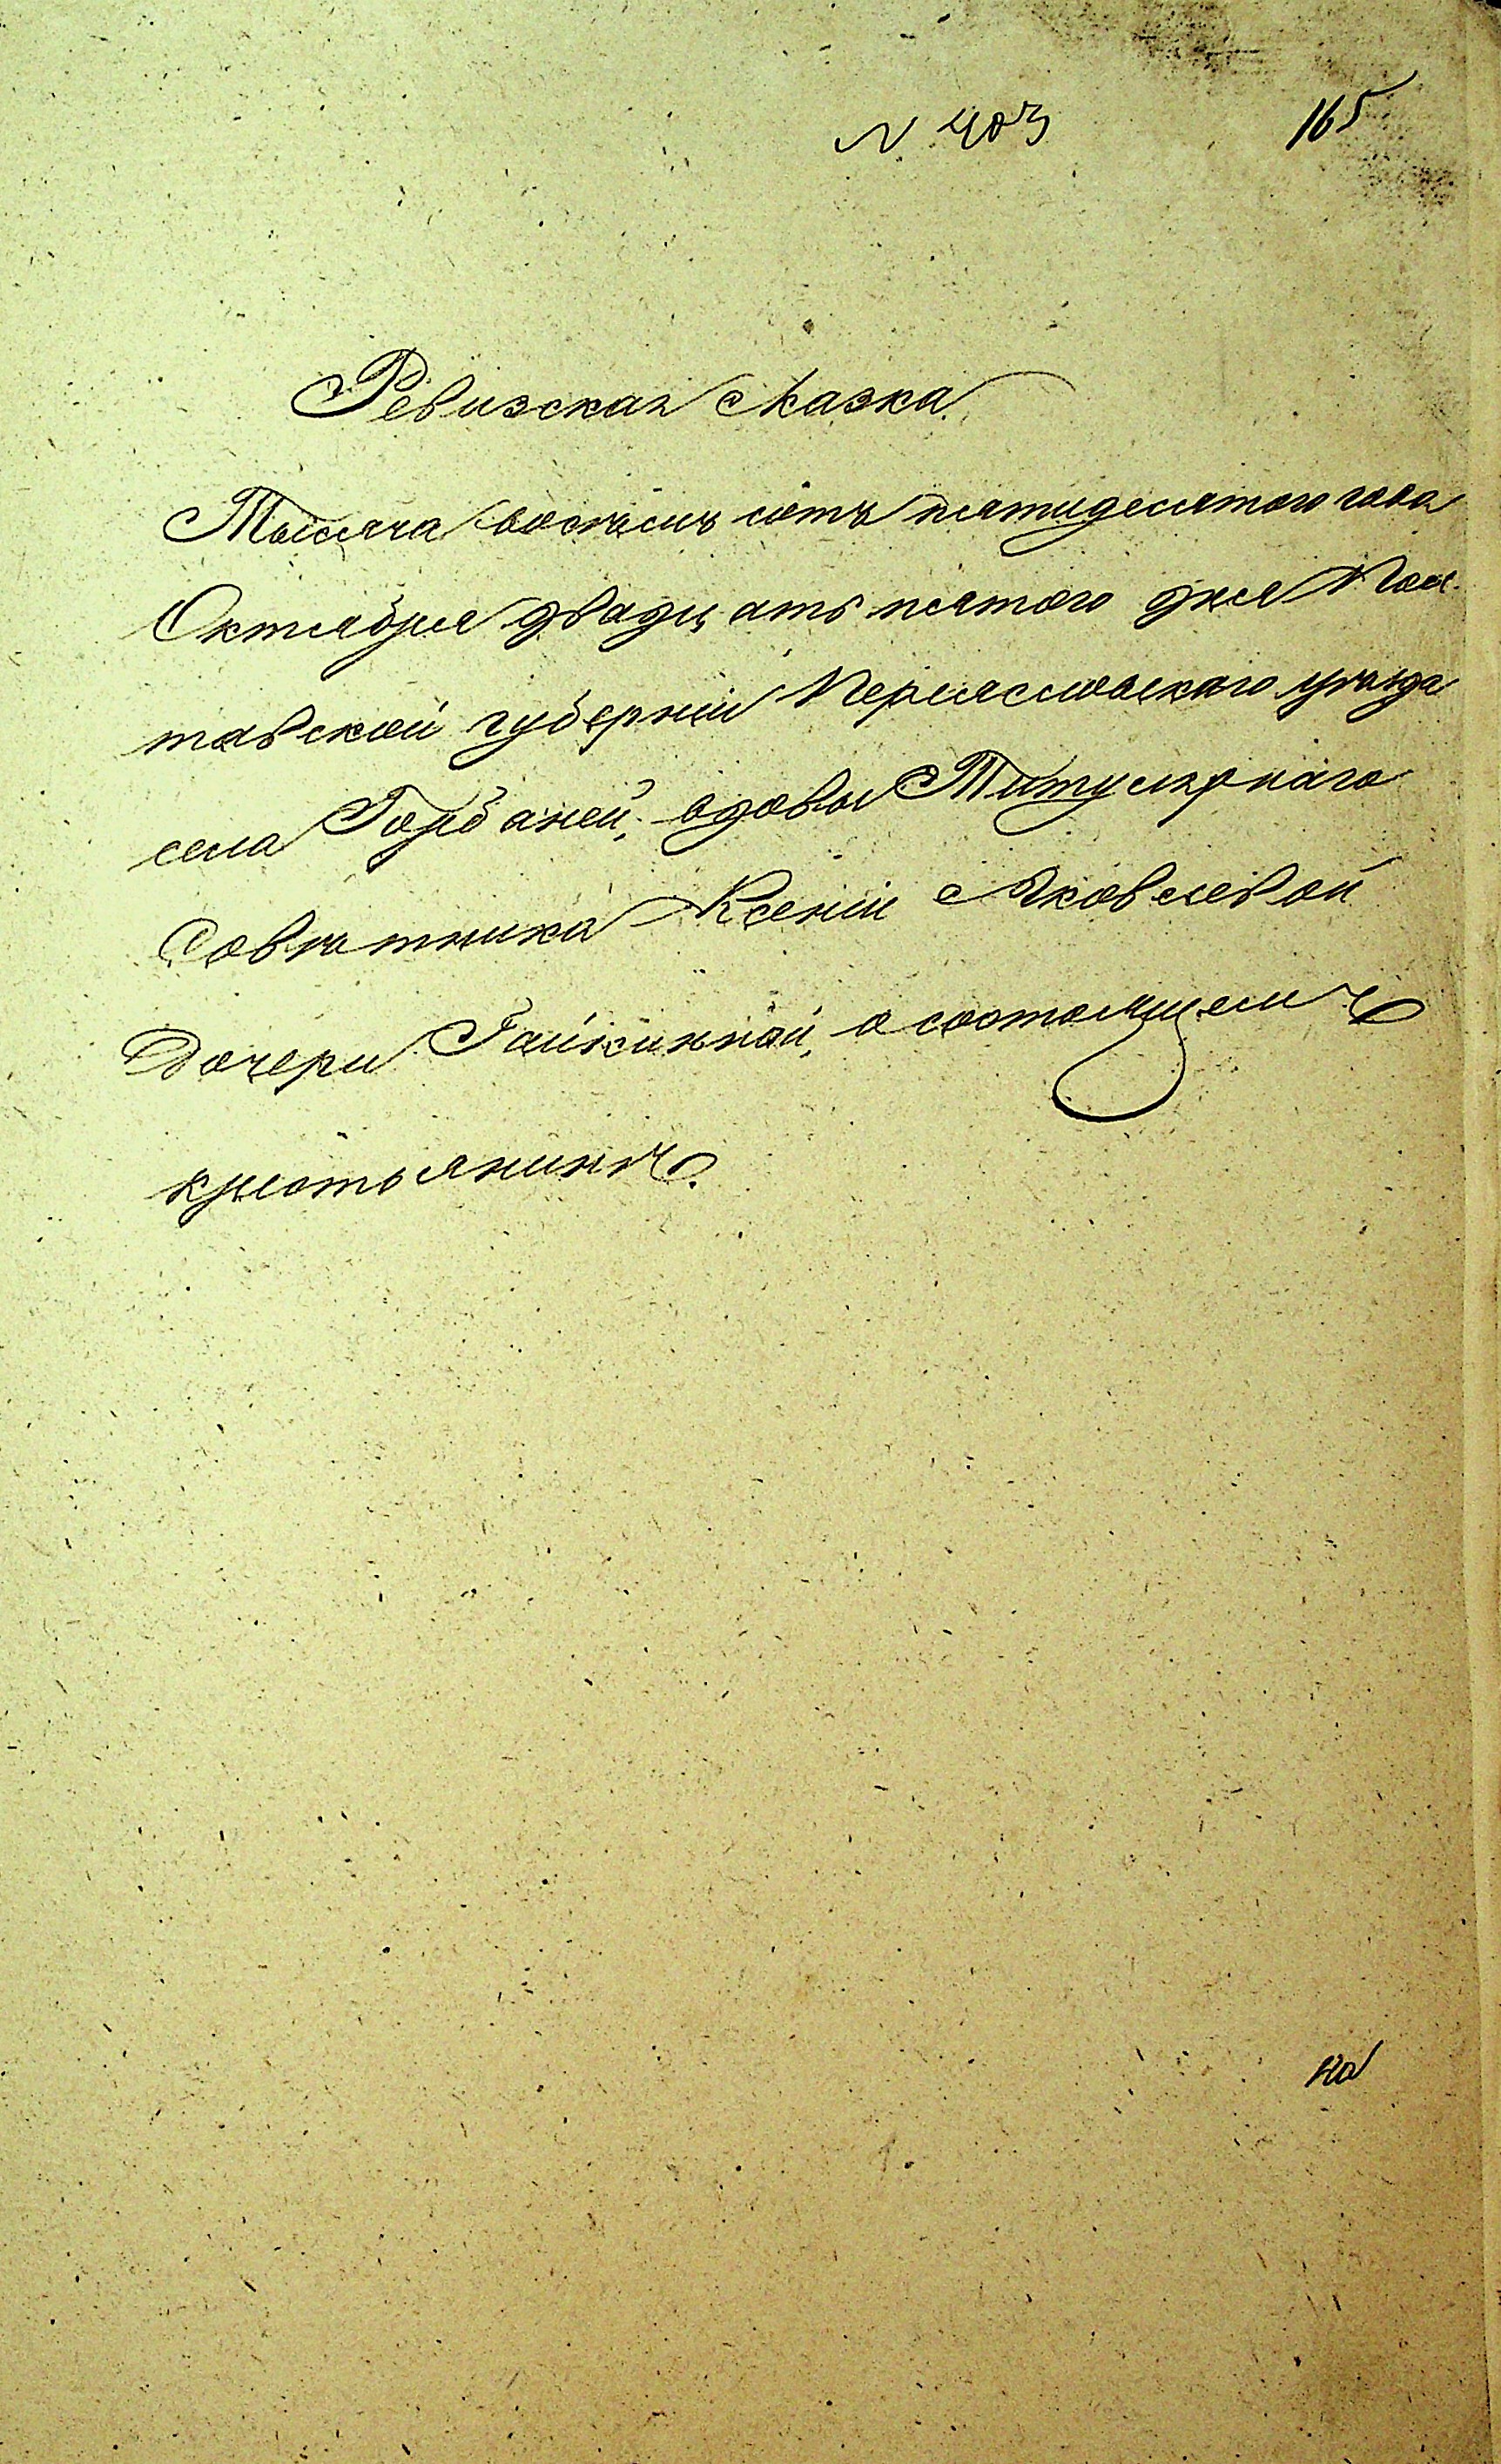 N 403
165
Ревизская сказка
Тысяча восѣмь сотъ пятидесятого года
Октября двадцать пятого дня Пол
тавской губерніи Переясловскаго уѣзда
села Горбаней, вдовы Титулярнаго
Совѣтника Ксеніи Яковлевой
Дочери о состоящемъ
крестьянинѣ.